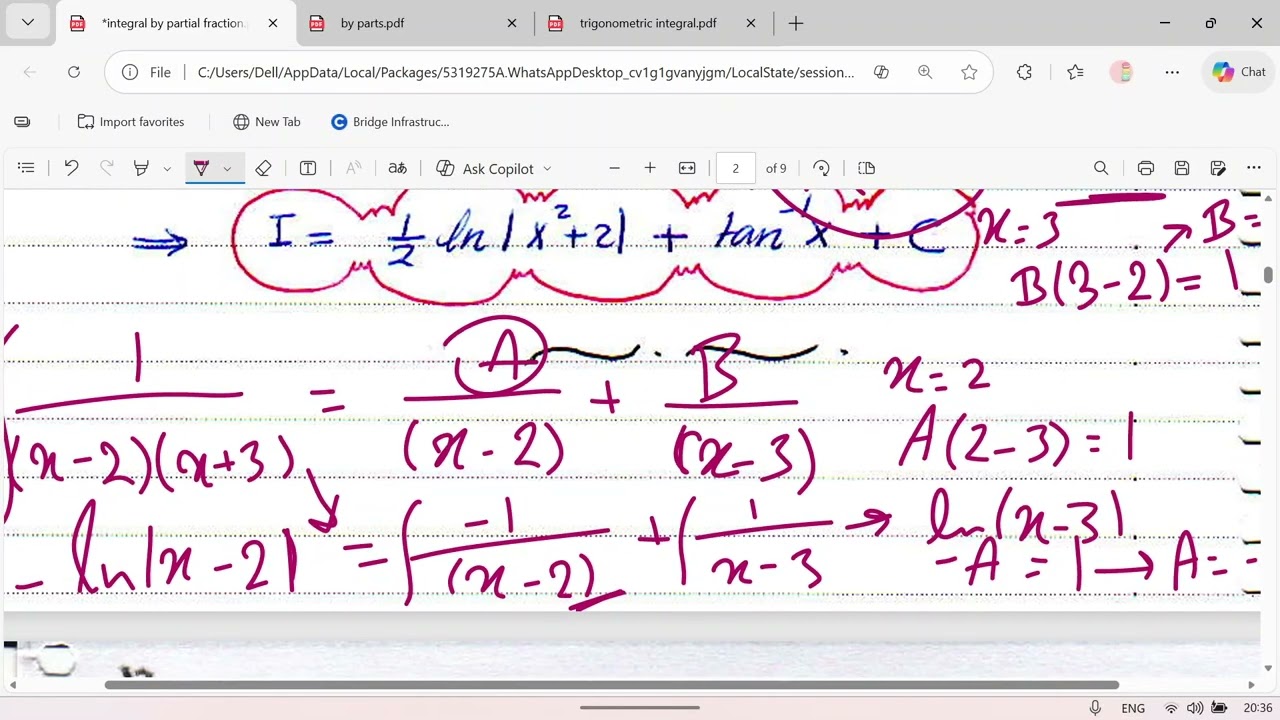 *integral by partial fraction.
by parts.pdf
trigonometric integral.pdf
File
C:/Users/Dell/AppData/Local/Packages/5319275A.WhatsAppDesktop_cv1g1gvanyjgm/LocalState/session...
Chat
Import favorites
New Tab
Bridge Infrastruc...
Ask Copilot
2 of 9
⟹ I = 1/2 ln|x²+2| + tan⁻¹x + C
x=3 → B=
B(3-2)=1
1/((x-2)(x+3)) = A/(x-2) + B/(x-3)
x=2
A(2-3)=1
- ln|x-2| = ∫ -1/(x-2) + ∫ 1/(x-3) → ln(x-3)
-A = 1 → A = -
ENG
20:36